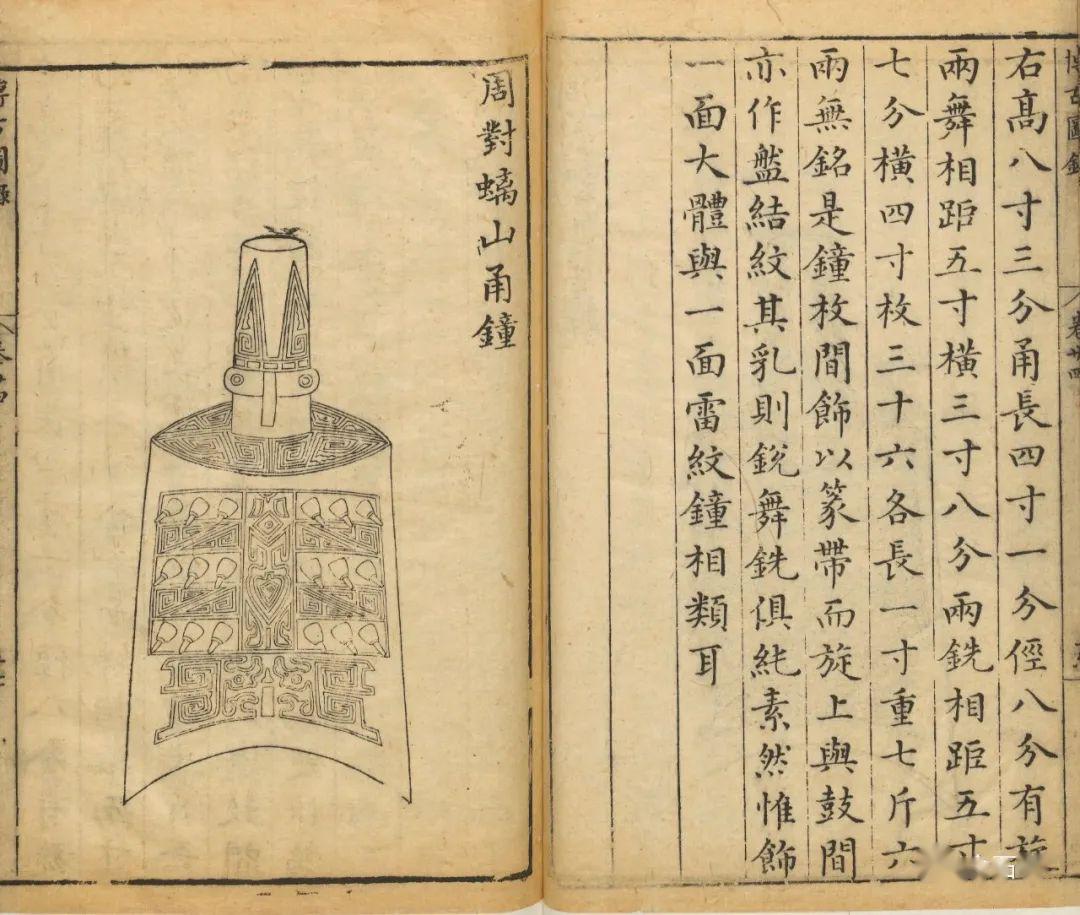 博古圖錄
卷廿四
右高八寸三分甬長四寸一分徑八分有旋
兩舞相距五寸橫三寸八分兩銑相距五寸
七分橫四寸枚三十六各長一寸重七斤六
兩無銘是鐘枚間飾以篆帶而旋上與鼓間
亦作盤結紋其乳則銳舞銑俱純素然惟飾
一面大體與一面雷紋鐘相類耳
周對螭山甬鐘
博古圖錄
卷廿四